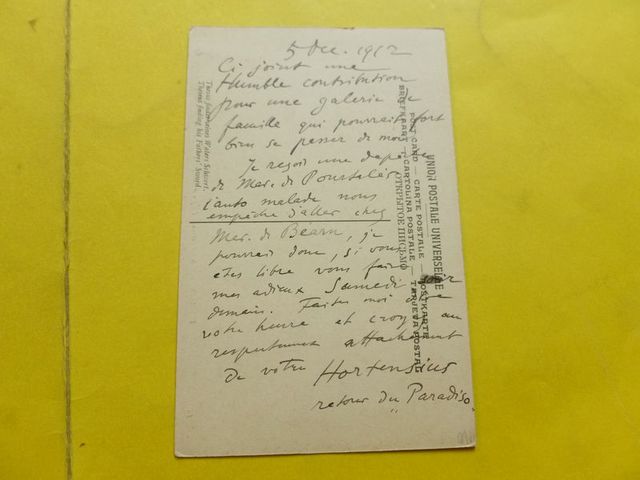 5 Dec. 1912
Ci joint une
humble contribution
pour une galerie de
famille qui pourrait fort
bien se passer de moi
Je reçois une dépêche
de Mar. de Pourtalès
l'auto malade nous
empêche d'aller chez
Mar. de Bearn, je
pourrais donc, si vous
etes libre vous faire
mes adieux Samedi soir
demain. Faites moi dire
votre heure et croyez au
respectueux attachement
de votre Hortensius
retour du "Paradiso"
UNION POSTALE UNIVERSELLE
POST CARD — CARTE POSTALE — POSTKARTE
BRIEFKAART — CARTOLINA POSTALE — TARJETA POSTAL
ОТКРЫТОЕ ПИСЬМО
Theseus finding his Father's Sword.